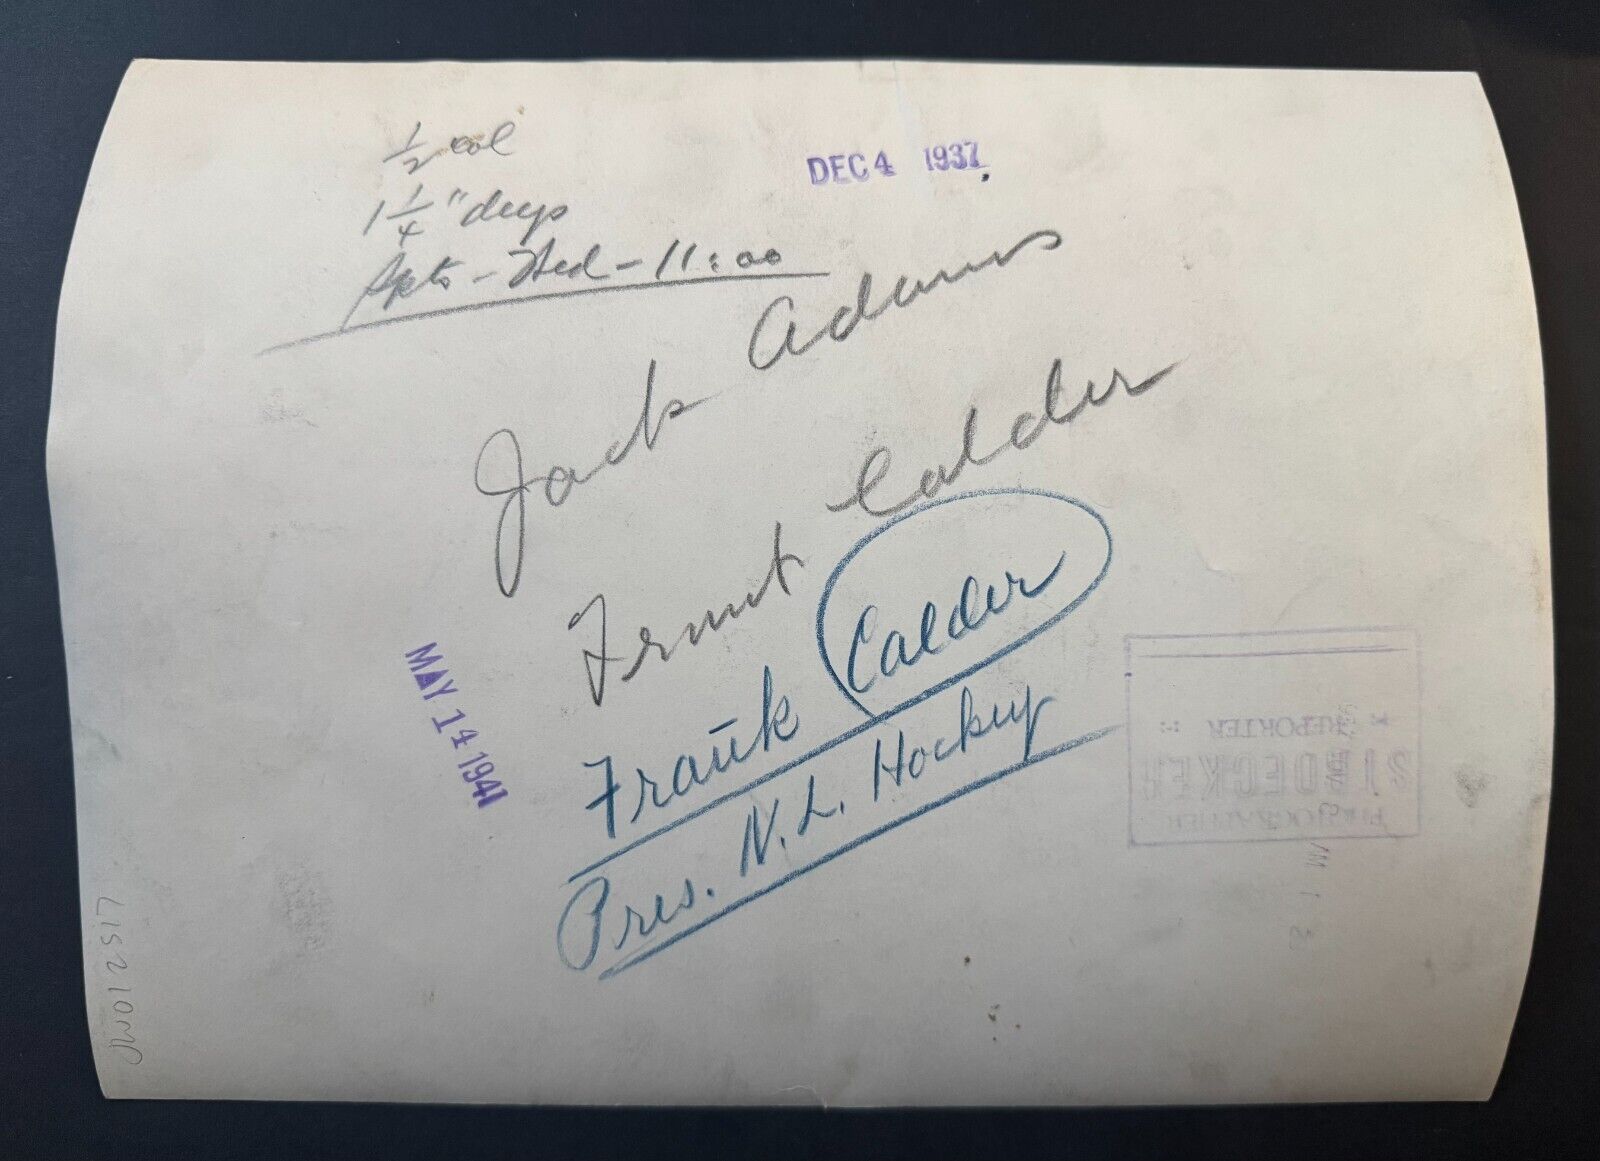 1/2 col
1 1/4" deep
Spts - Wed - 11:00
DEC 4 1937
Jack Adams
Calder
Frank Calder
Pres. N. L. Hockey
MAY 14 1941
REPORTER
PHOTOGRAPHER